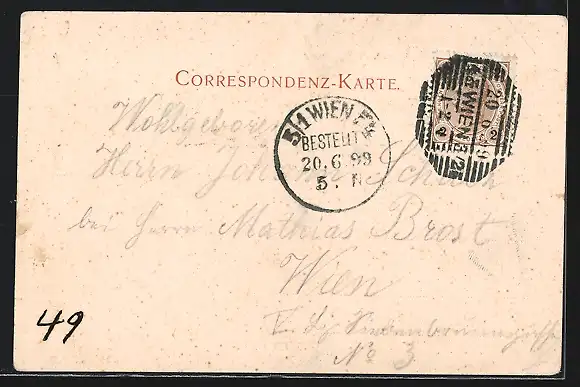 CORRESPONDENZ-KARTE.
3/1 WIEN
BESTELLT
20.6.99
5. N
WIEN
20 6 9
2 2
Wohlgeboren
Herrn
bei Herrn Mathias Brost
Wien
No 3
49